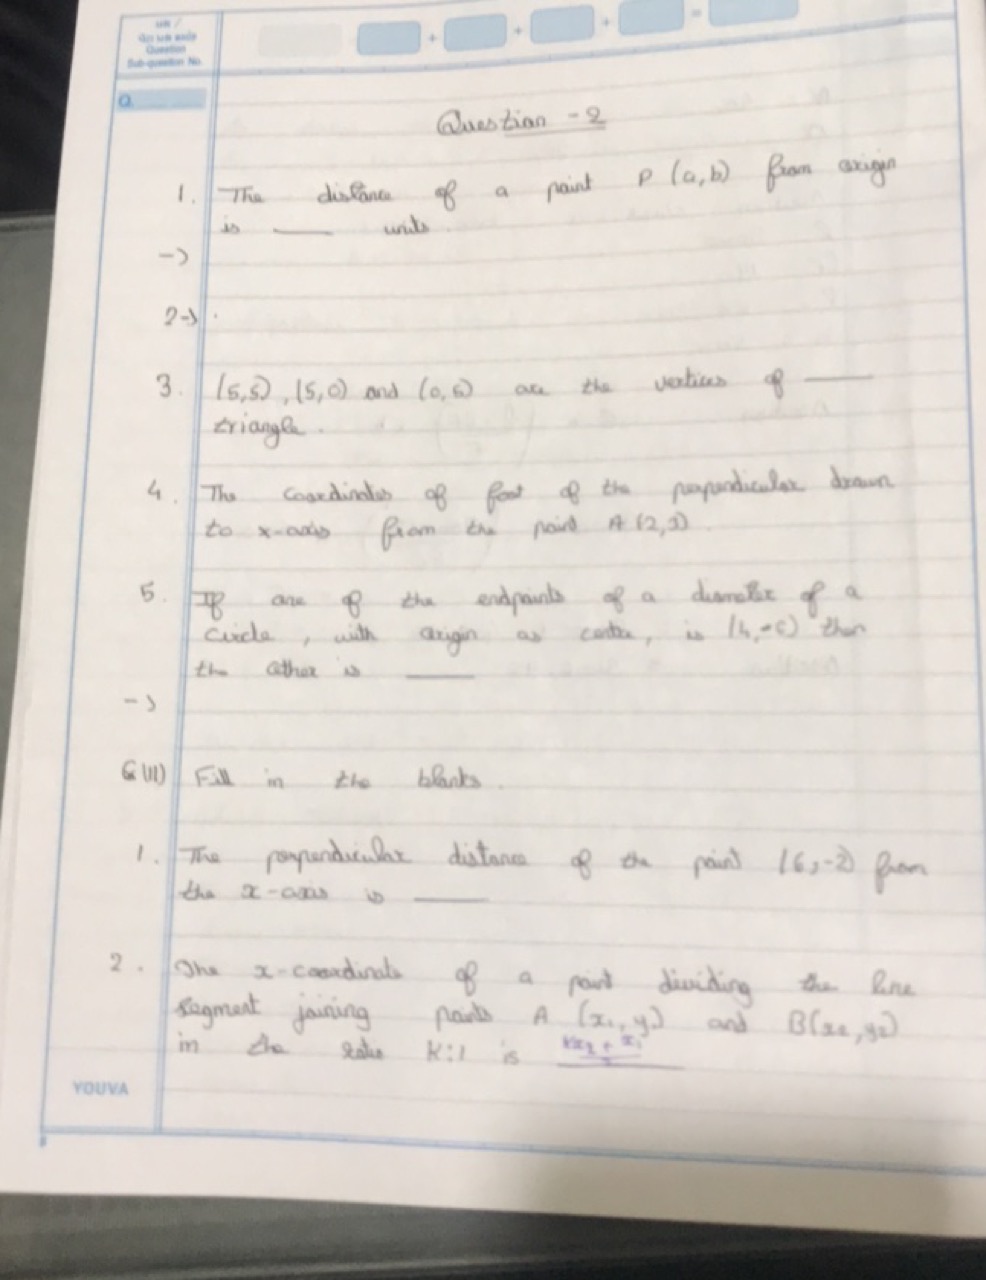 Question
Sub-question No.
+ + + =
Q.
Question - 2
1. The distance of a point P (a,b) from origin
is ___ units.
->
2->
3. (5,5), (5,0) and (0,5) are the vertices of ___
triangle.
4. The coordinates of foot of the perpendicular drawn
to x-axis from the point A (2,3)
5. If one of the endpoints of a diameter of a
circle, with origin as centre, is then
the other is ___
->
Fill in the blanks.
1. The perpendicular distance of the point (6,-2) from
the x-axis is ___
2. The x-coordinate of a point dividing the line
segment joining points A (x₁, y₁) and B(x₂, y₂)
in the ratio K:1 is
YOUVA